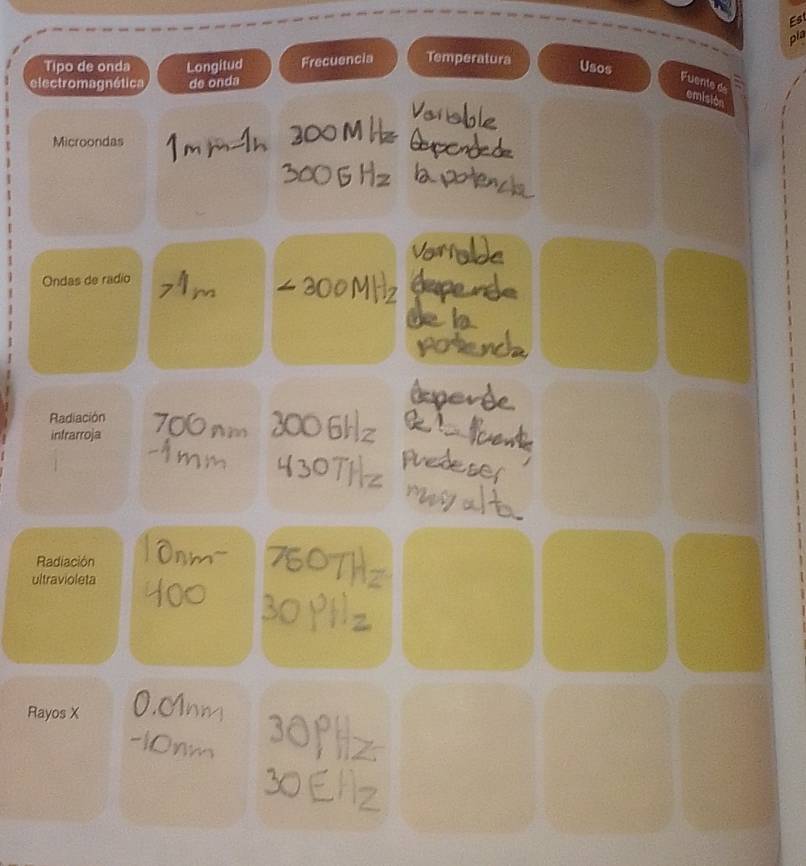 Est
pla
Tipo de onda
electromagnética
Longitud
de onda
Frecuencia
Temperatura
Usos
Fuente de
emisión
Microondas
1mm-1n
300MHz
300GHz
Variable
dependede
la potencia
Ondas de radio
>1m
<300MHz
variable
depende
de la
potencia
Radiación
infrarroja
700nm
-1mm
300GHz
430THz
depende
de la fuente,
Puedeser
muy alta
Radiación
ultravioleta
10nm-
400
750THz
30PHz
Rayos X
0.01nm
-10nm
30PHz
30EHz